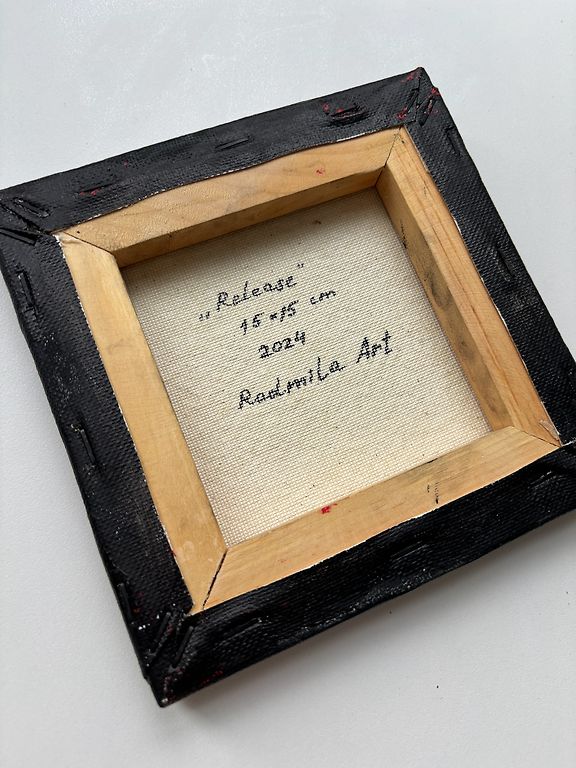 „Release"
15×15 cm
2024
Radmila Art